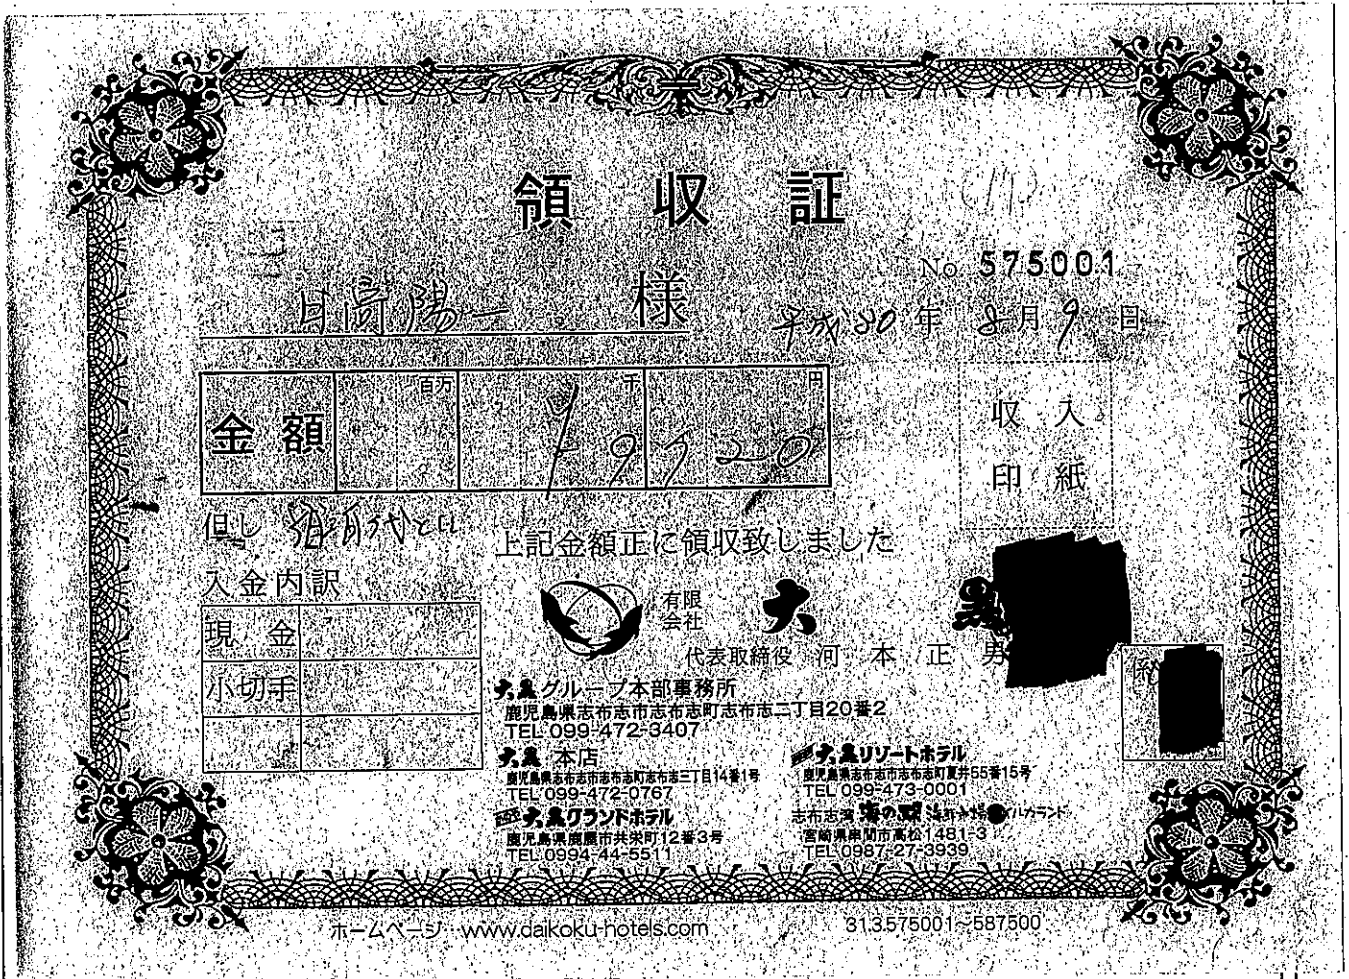 領収証
(11)
No 575001
日高陽一 様
平成30年8月9日
金額 百万 千 円
¥9720
収入
印紙
但し
上記金額正に領収致しました
入金内訳
現金
小切手
有限会社 大黒
代表取締役 河本正男
係
大黒グループ本部事務所
鹿児島県志布志市志布志町志布志二丁目20番2
TEL 099-472-3407
大黒 本店
鹿児島県志布志市志布志町志布志三丁目14番1号
TEL 099-472-0767
大黒リゾートホテル
鹿児島県志布志市志布志町夏井55番15号
TEL 099-473-0001
大黒グランドホテル
鹿児島県鹿屋市共栄町12番3号
TEL 0994-44-5511
志布志湾 海の駅 イルカランド
宮崎県串間市高松1481-3
TEL 0987-27-3939
ホームページ www.daikoku-hotels.com
313.575001~587500